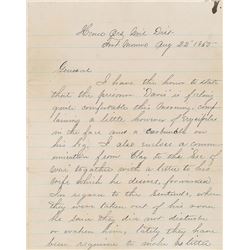 Head Qrs. Mil. Dist.
Fort Monroe Aug 22d 1865
General
I have the honor to state
that the prisoner "Davis" is feeling
quite comfortable this morning, com-
plaining a little however of Erysipelas
in the face and a carbuncle on
his leg. I also enclose a commu-
nication from Clay to the Sec of
War together with a letter to his
wife which he desires forwarded.
In regard to the Sentinels, when
they were taken out of his room
he said they did not disturb
or waken him, lately they have
been required to make as little